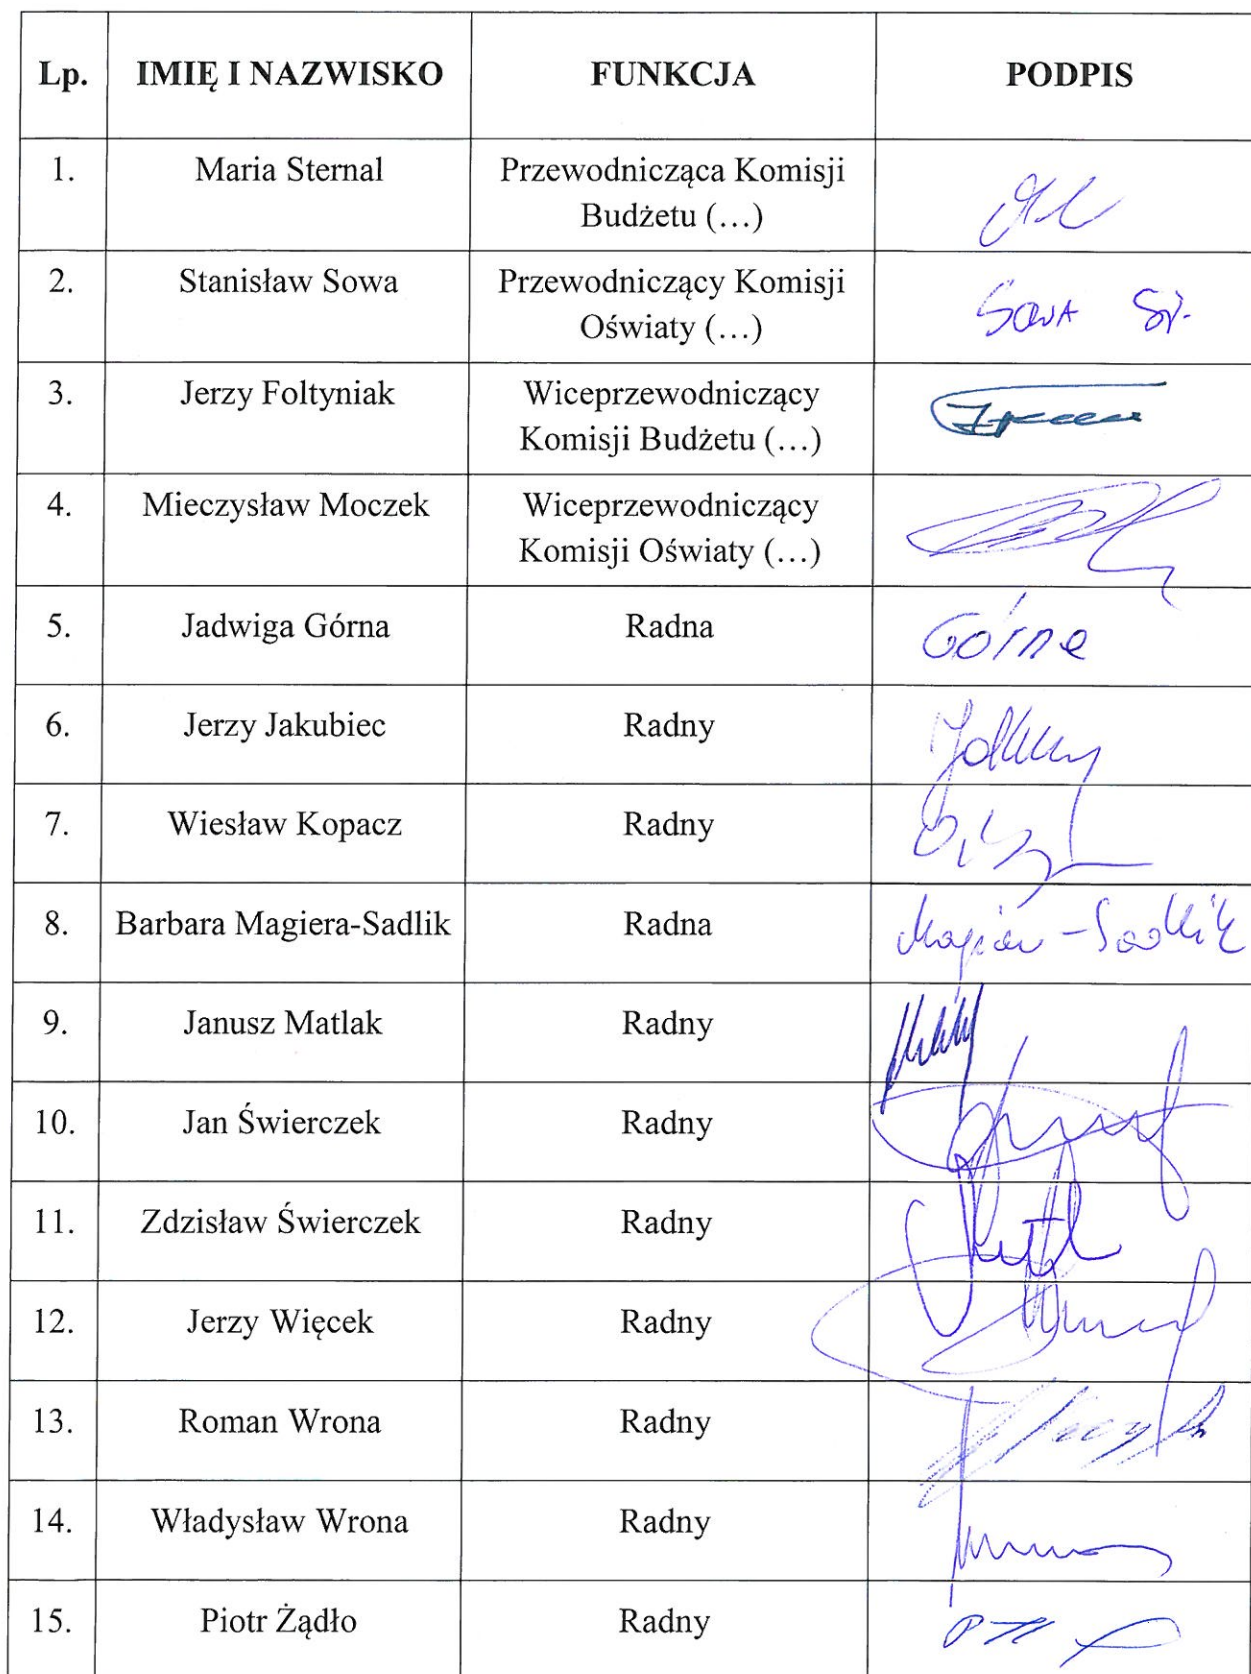 Lp. IMIĘ I NAZWISKO FUNKCJA PODPIS
1. Maria Sternal Przewodnicząca Komisji
Budżetu (…)
2. Stanisław Sowa Przewodniczący Komisji
Oświaty (…) Sowa St.
3. Jerzy Foltyniak Wiceprzewodniczący
Komisji Budżetu (…)
4. Mieczysław Moczek Wiceprzewodniczący
Komisji Oświaty (…)
5. Jadwiga Górna Radna Górna
6. Jerzy Jakubiec Radny
7. Wiesław Kopacz Radny
8. Barbara Magiera-Sadlik Radna Magiera-Sadlik
9. Janusz Matlak Radny
10. Jan Świerczek Radny
11. Zdzisław Świerczek Radny
12. Jerzy Więcek Radny
13. Roman Wrona Radny
14. Władysław Wrona Radny
15. Piotr Żądło Radny